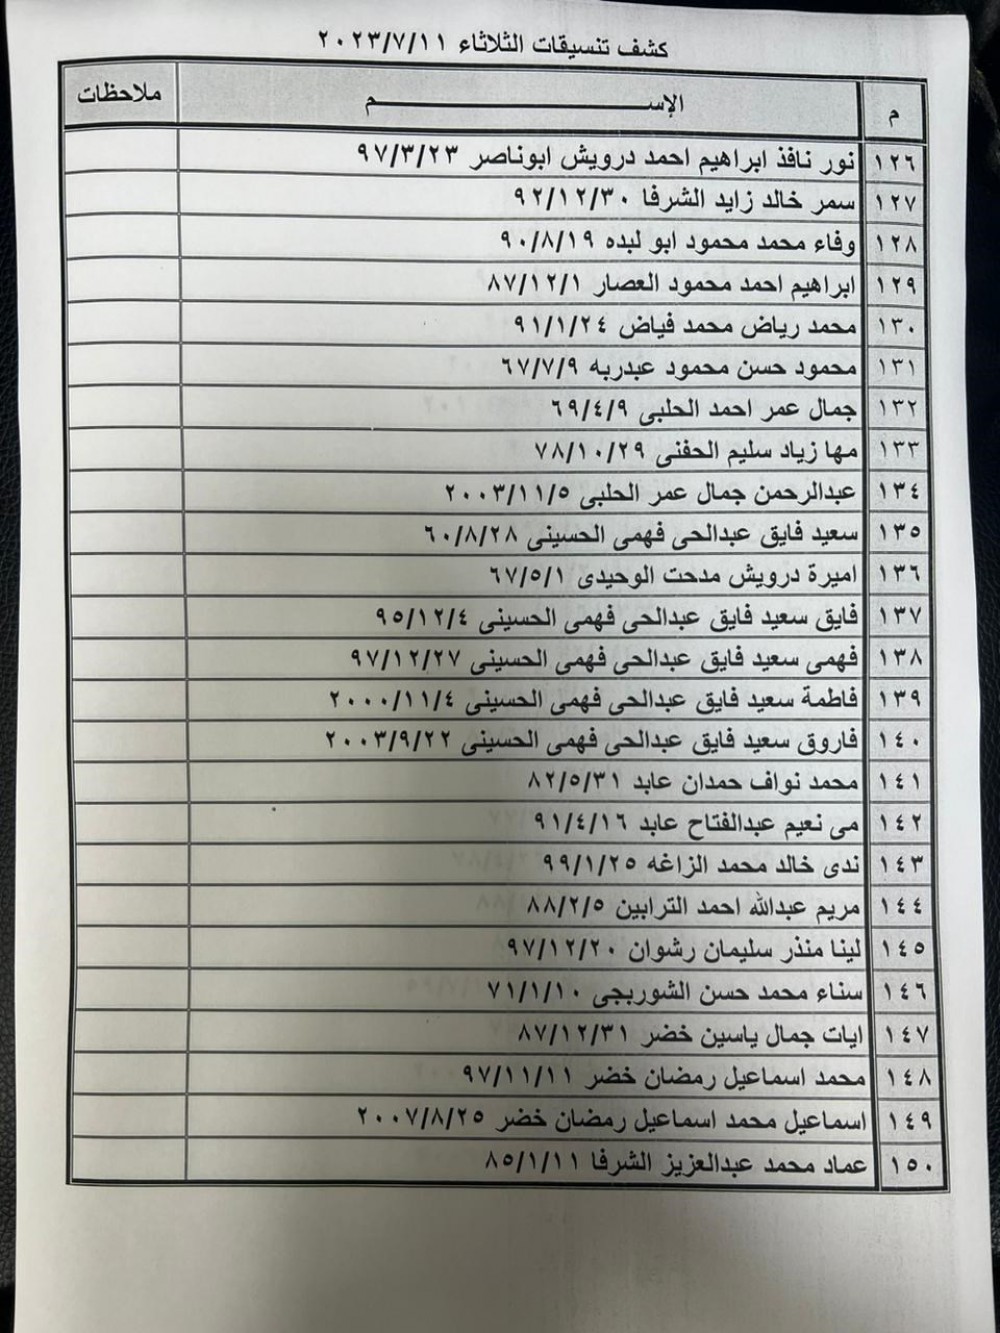 كشف تنسيقات الثلاثاء ٢٠٢٣/٧/١١
م الإســـــم ملاحظات
١٢٦ نور نافذ ابراهيم احمد درويش ابوناصر ٩٧/٣/٢٣
١٢٧ سمر خالد زايد الشرفا ٩٢/١٢/٣٠
١٢٨ وفاء محمد محمود ابو لبده ٩٠/٨/١٩
١٢٩ ابراهيم احمد محمود العصار ٨٧/١٢/١
١٣٠ محمد رياض محمد فياض ٩١/١/٢٤
١٣١ محمود حسن محمود عبدربه ٦٧/٧/٩
١٣٢ جمال عمر احمد الحلبى ٦٩/٤/٩
١٣٣ مها زياد سليم الحفنى ٧٨/١٠/٢٩
١٣٤ عبدالرحمن جمال عمر الحلبى ٢٠٠٣/١١/٥
١٣٥ سعيد فايق عبدالحى فهمى الحسينى ٦٠/٨/٢٨
١٣٦ اميرة درويش مدحت الوحيدى ٦٧/٥/١
١٣٧ فايق سعيد فايق عبدالحى فهمى الحسينى ٩٥/١٢/٤
١٣٨ فهمى سعيد فايق عبدالحى فهمى الحسينى ٩٧/١٢/٢٧
١٣٩ فاطمة سعيد فايق عبدالحى فهمى الحسينى ٢٠٠٠/١١/٤
١٤٠ فاروق سعيد فايق عبدالحى فهمى الحسينى ٢٠٠٣/٩/٢٢
١٤١ محمد نواف حمدان عابد ٨٢/٥/٣١
١٤٢ مى نعيم عبدالفتاح عابد ٩١/٤/١٦
١٤٣ ندى خالد محمد الزاغه ٩٩/١/٢٥
١٤٤ مريم عبدالله احمد الترابين ٨٨/٢/٥
١٤٥ لينا منذر سليمان رشوان ٩٧/١٢/٢٠
١٤٦ سناء محمد حسن الشوربجى ٧١/١/١٠
١٤٧ ايات جمال ياسين خضر ٨٧/١٢/٣١
١٤٨ محمد اسماعيل رمضان خضر ٩٧/١١/١١
١٤٩ اسماعيل محمد اسماعيل رمضان خضر ٢٠٠٧/٨/٢٥
١٥٠ عماد محمد عبدالعزيز الشرفا ٨٥/١/١١